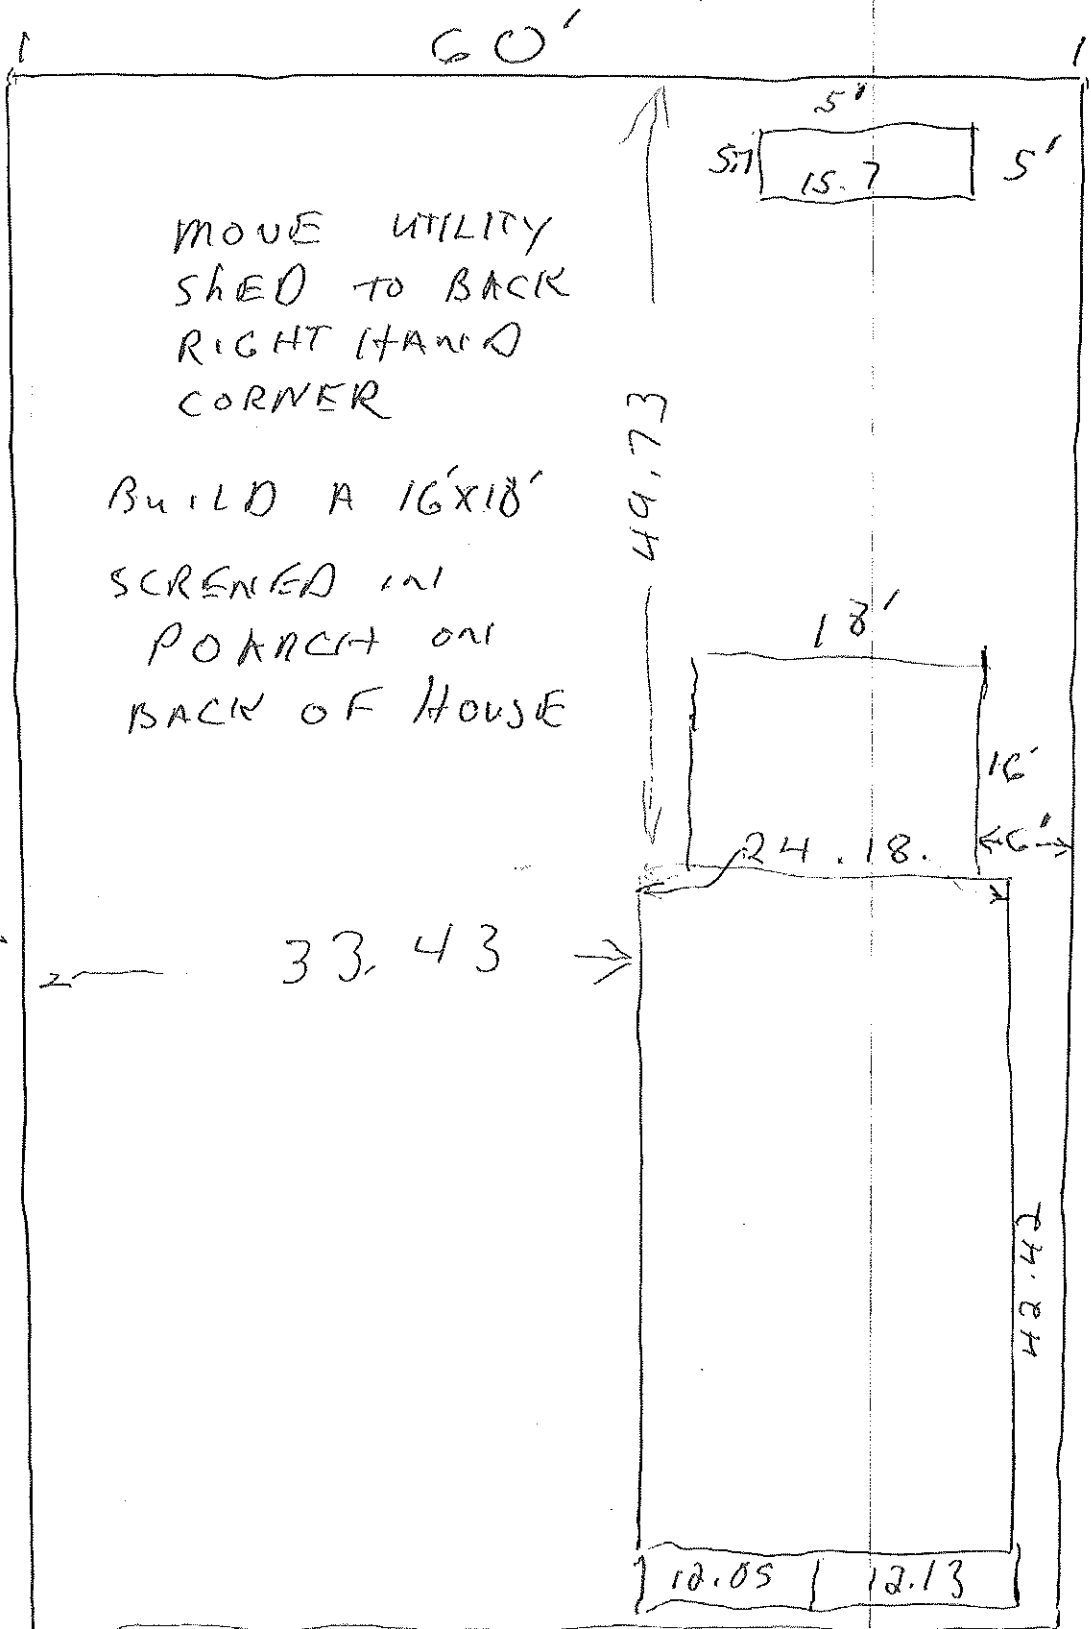 60'
5'
5.7
15.7
5'
MOVE UTILITY
ShED TO BACK
RIGHT HAND
CORNER
49.73
BUILD A 16'X18'
SCRENED IN
POARCH ON
BACK OF HOUSE
18'
16'
24.18.
6'
33.43
42.42
12.05
12.13